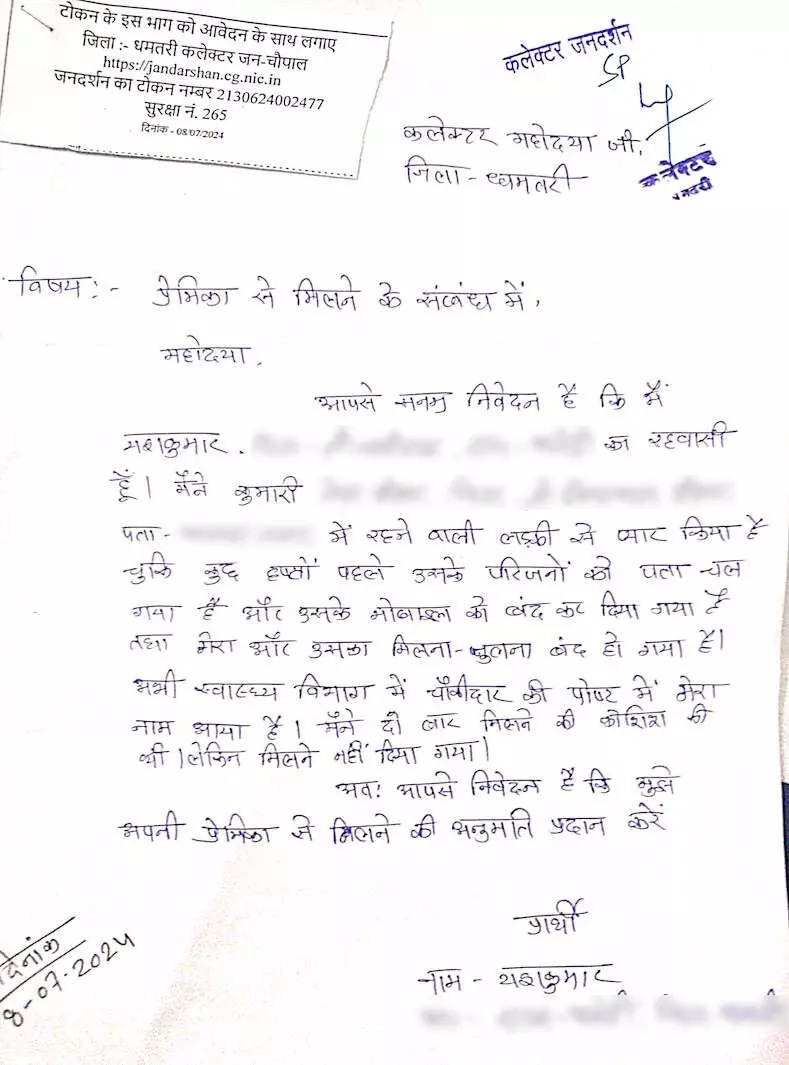 टोकन के इस भाग को आवेदन के साथ लगाए
जिला :- धमतरी कलेक्टर जन-चौपाल
https://jandarshan.cg.nic.in
जनदर्शन का टोकन नम्बर 2130624002477
सुरक्षा नं. 265
दिनांक - 08/07/2024
कलेक्टर जनदर्शन
SP
कलेक्टर महोदया जी,
जिला - धमतरी
कलेक्टर
धमतरी
विषय :- प्रेमिका से मिलने के संबंध में,
महोदया,
आपसे सनम्र निवेदन है कि मैं
यशकुमार. का रहवासी
हूँ। मैंने कुमारी
पता- में रहने वाली लड़की से प्यार किया है
चुकि कुछ हफ्तों पहले उसके परिजनों को पता चल
गया है और उसके मोबाइल को बंद कर दिया गया है
तथा मेरा और उसका मिलना-जुलना बंद हो गया है।
अभी स्वास्थ्य विभाग में चौकीदार की पोस्ट में मेरा
नाम आया है। मैंने दो बार मिलने की कोशिश की
थी। लेकिन मिलने नहीं दिया गया।
अतः आपसे निवेदन है कि मुझे
अपनी प्रेमिका से मिलने की अनुमति प्रदान करें
प्रार्थी
नाम - यशकुमार
दिनांक
8-07-2024